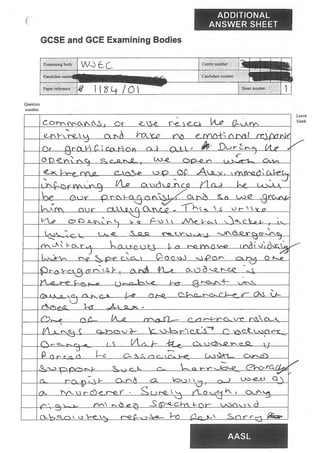 ADDITIONAL
ANSWER SHEET
GCSE and GCE Examining Bodies
Examining body WJEC
Centre number
Candidate name
Candidate number
Paper reference 1184/01
Sheet number 1
Question
number
Leave
blank
commands, or else reject the film
entirely and take no emotional response
or gratification at all. During the
opening scene, we open with an
extreme close up of Alex, immediately
informing the audience that he will
be our protagonist, and so we grant
him our allegiance. This is unlike
the opening to Full Metal Jacket, in
which we see recruits undergoing
military haircuts to remove individuality
with no special focus upon any one
protagonist, and the audience is
therefore unable to grant
allegiance to one character as it
does to Alex.
One of the most controversial
things about Kubrick's Clockwork
Orange is that the audience is
forced to associate with and
support such a horrible character
a rapist and a bully, as well as
a murderer. Surely though, any
right minded spectator would
absolutely refuse to feel sorry for
AASL